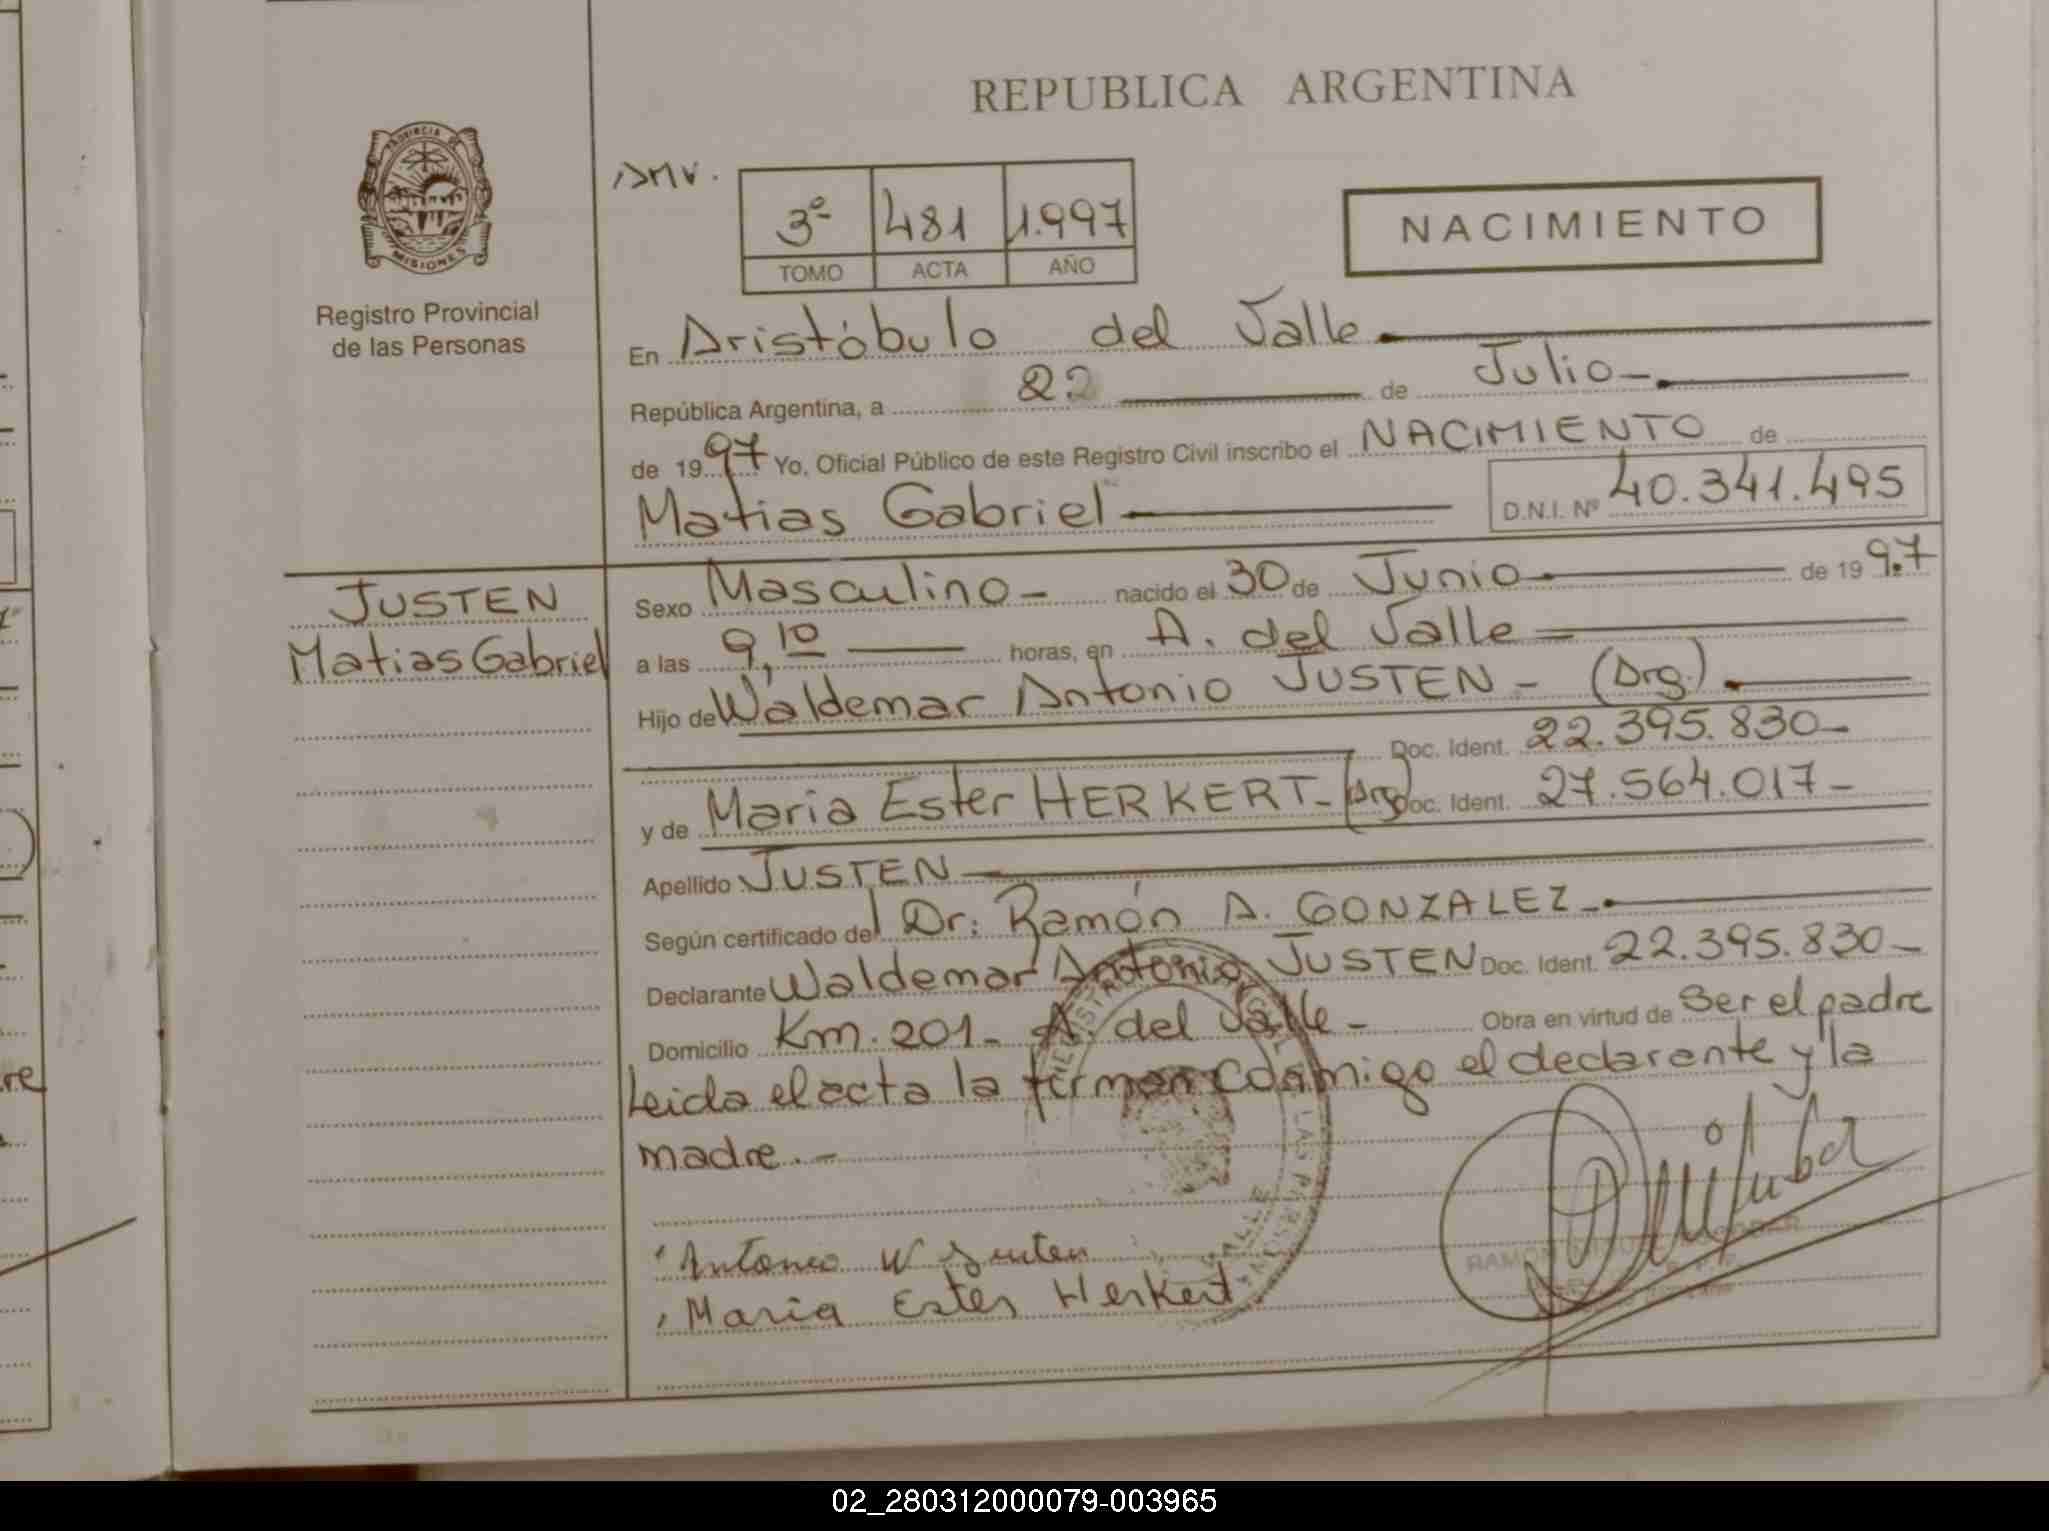 REPUBLICA ARGENTINA
PROVINCIA DE
MISIONES
Registro Provincial
de las Personas
AMV.
3º 481 1.997
TOMO ACTA AÑO
NACIMIENTO
En Aristóbulo del Valle
República Argentina, a 22 de Julio
de 1997 Yo, Oficial Público de este Registro Civil inscribo el NACIMIENTO de
Matias Gabriel D.N.I. Nº 40.341.495
JUSTEN
Matias Gabriel
Sexo Masculino - nacido el 30 de Junio de 1997
a las 9,10 horas, en A. del Valle
Hijo de Waldemar Antonio JUSTEN - (Arg.)
Doc. Ident. 22.395.830-
y de Maria Ester HERKERT - (Arg) Doc. Ident. 27.564.017-
Apellido JUSTEN
Según certificado del Dr: Ramón A. GONZALEZ -
Declarante Waldemar Antonio JUSTEN Doc. Ident. 22.395.830-
Domicilio Km. 201- A del Valle - Obra en virtud de Ser el padre
Leida el acta la firman conmigo el declarante y la
madre.-
Antonio W Justen
Maria Ester Herkert
RAMON
02_280312000079-003965